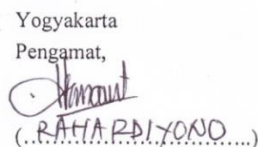 Yogyakarta
Pengamat,
(..RAHARDIYONO.....)